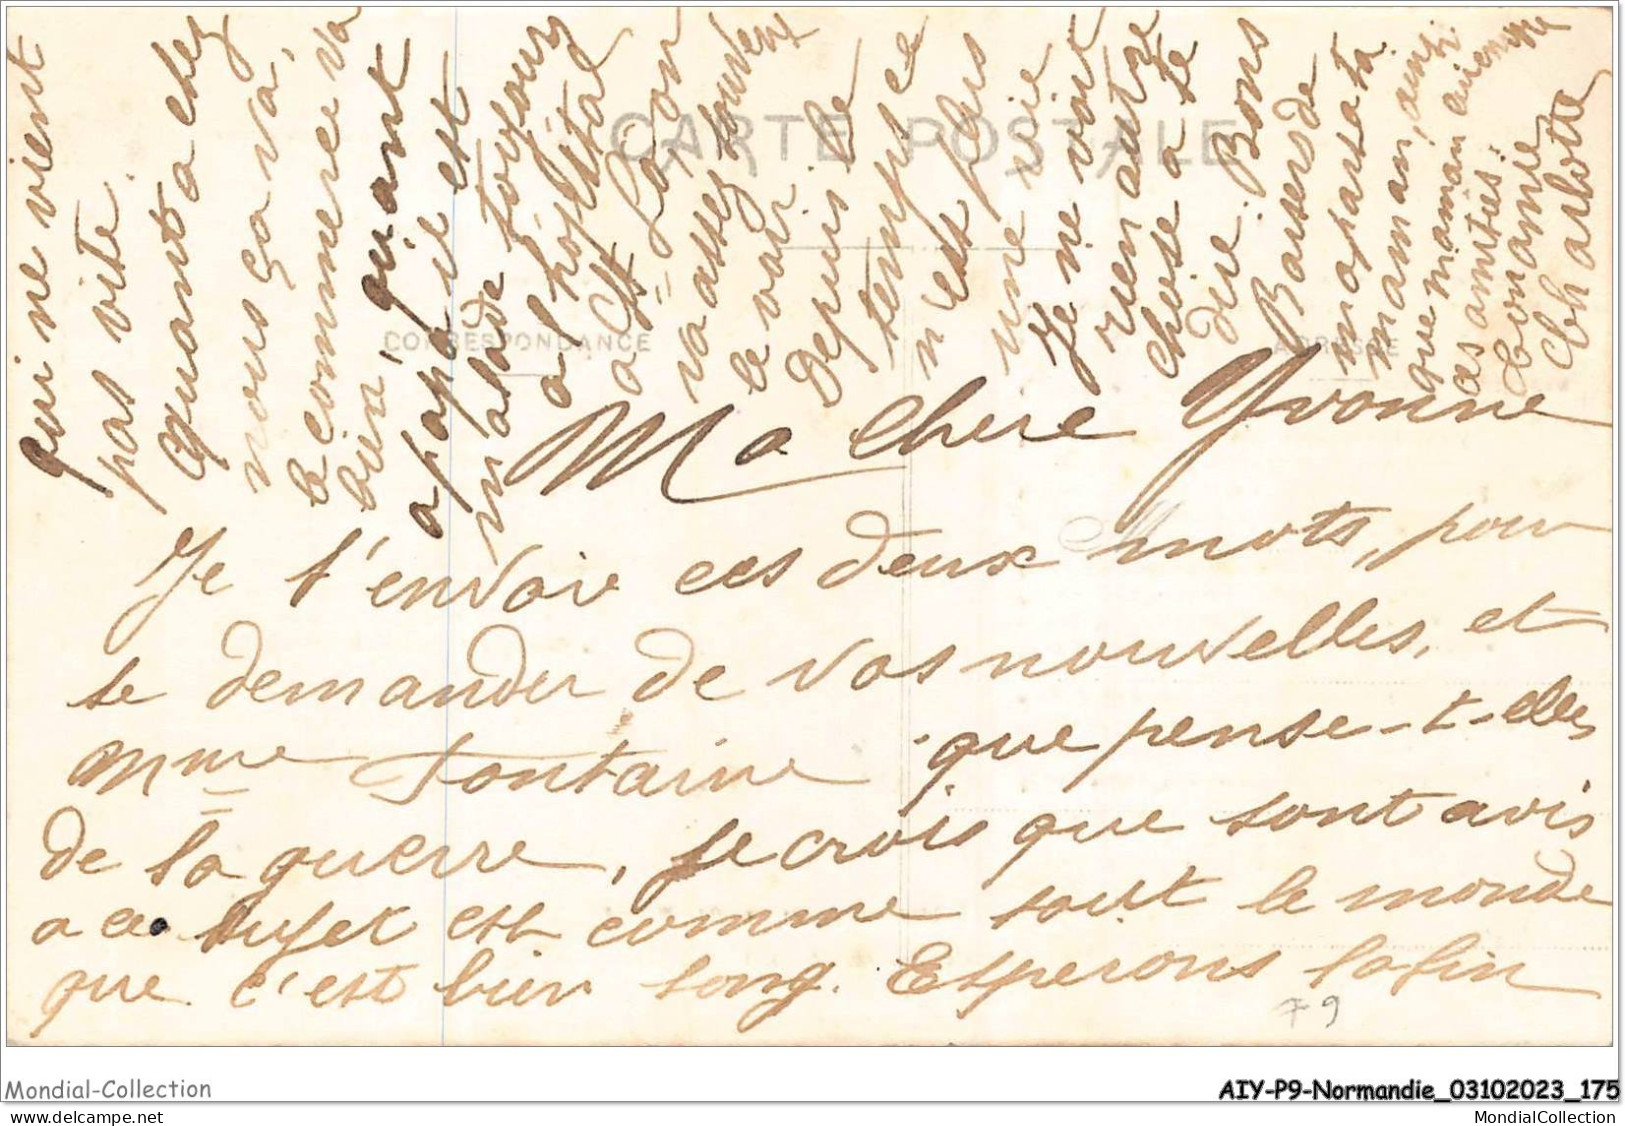 CARTE POSTALE
CORRESPONDANCE
ADRESSE
Ma Chere Yvonne
Je t'envoie ces deux mots, pour
te demander de vos nouvelles, et
Mme Fontaine que pense-t-elles
de la guerre, Je crois que sont avis
a ce sujet est comme tout le monde
que c'est bien long. Esperons la fin
qui ne vient
pas vite.
Quant a chez
nous ça va,
le commerce va
bien, quant
a papa il est
malade toujours
a l'hôpital
a St Lazare
va assez souvent
le voir
Depuis le
temps ce
n'est plus
une vie
Je ne voit
rien autre
chose a te
dire. Bons
Baisers de
ma part a ta
maman, ainsi
que maman
ces amitiés.
Ton amie
Charlotte
79
Mondial-Collection
AIY-P9-Normandie_03102023_175
MondialCollection.com
MondialCollection